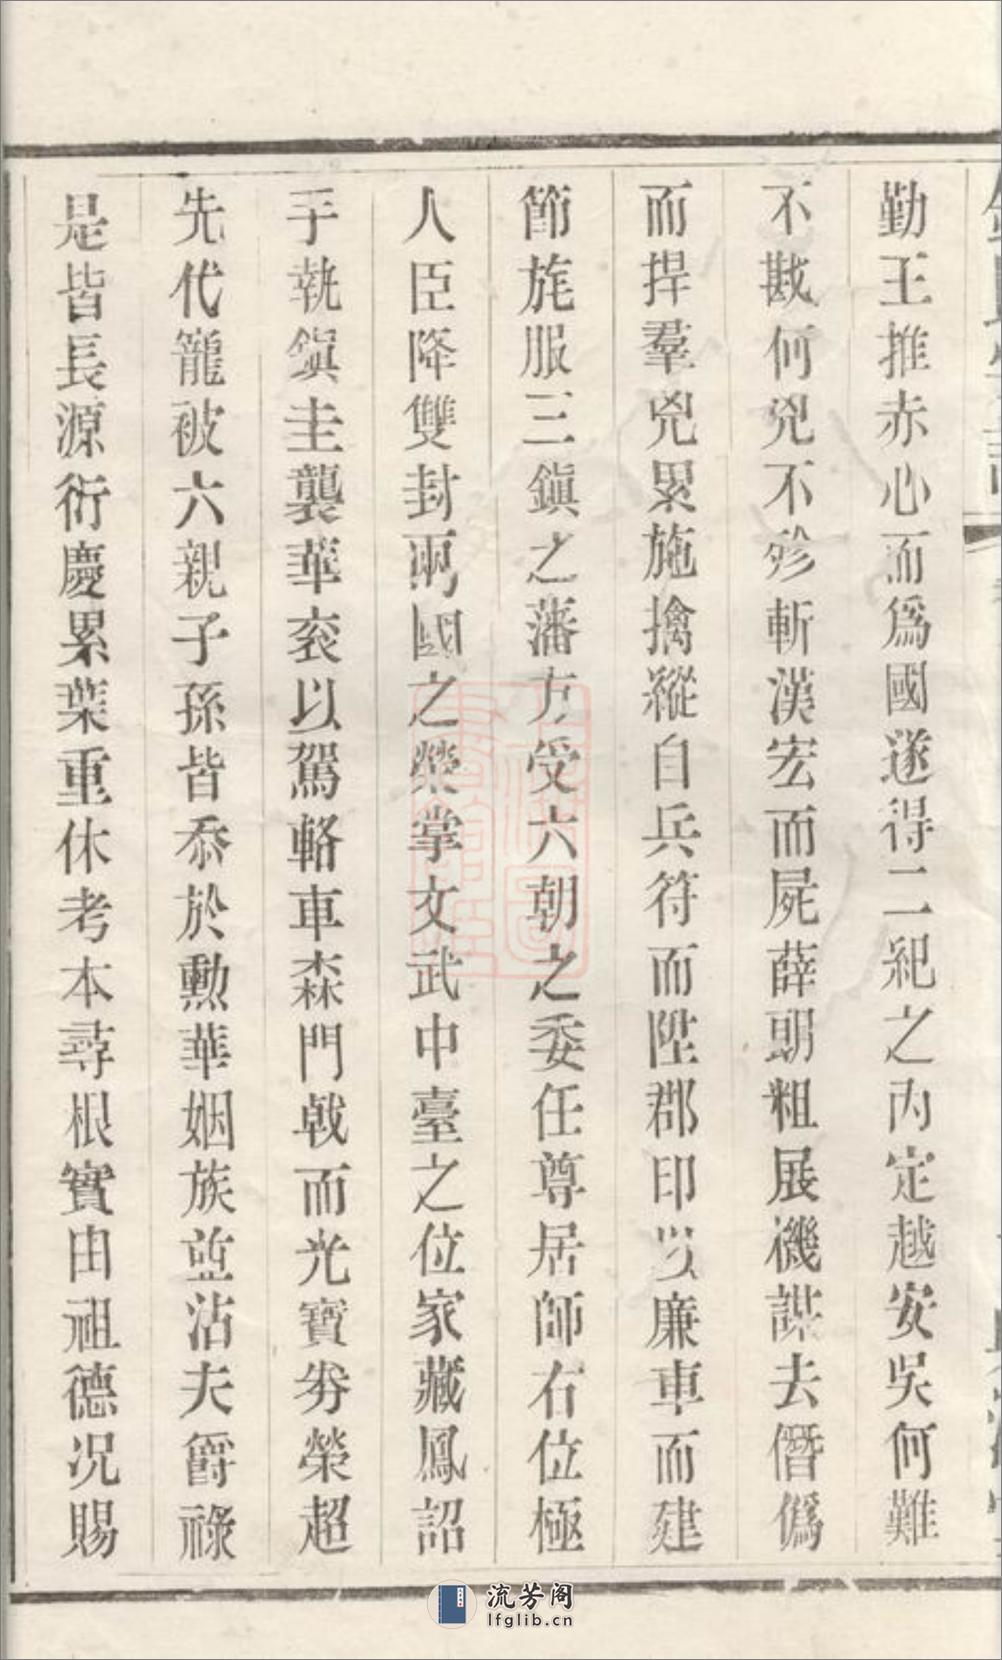 勤王推赤心而爲國遂得二紀之內定越安吳何難
不戡何兇不殄斬漢宏而屍薛朗粗展機謀去僭僞
而捍羣兇累施擒縱自兵符而陞郡印以廉車而建
節旄服三鎭之藩方受六朝之委任尊居師右位極
人臣降雙封兩國之榮掌文武中臺之位家藏鳳詔
手執鎭圭襲華衮以駕輅車森門戟而光寶券榮超
先代寵被六親子孫皆忝於勳華姻族並沾夫爵祿
是皆長源衍慶累葉重休考本尋根實由祖德况賜
流芳阁
lfglib.cn